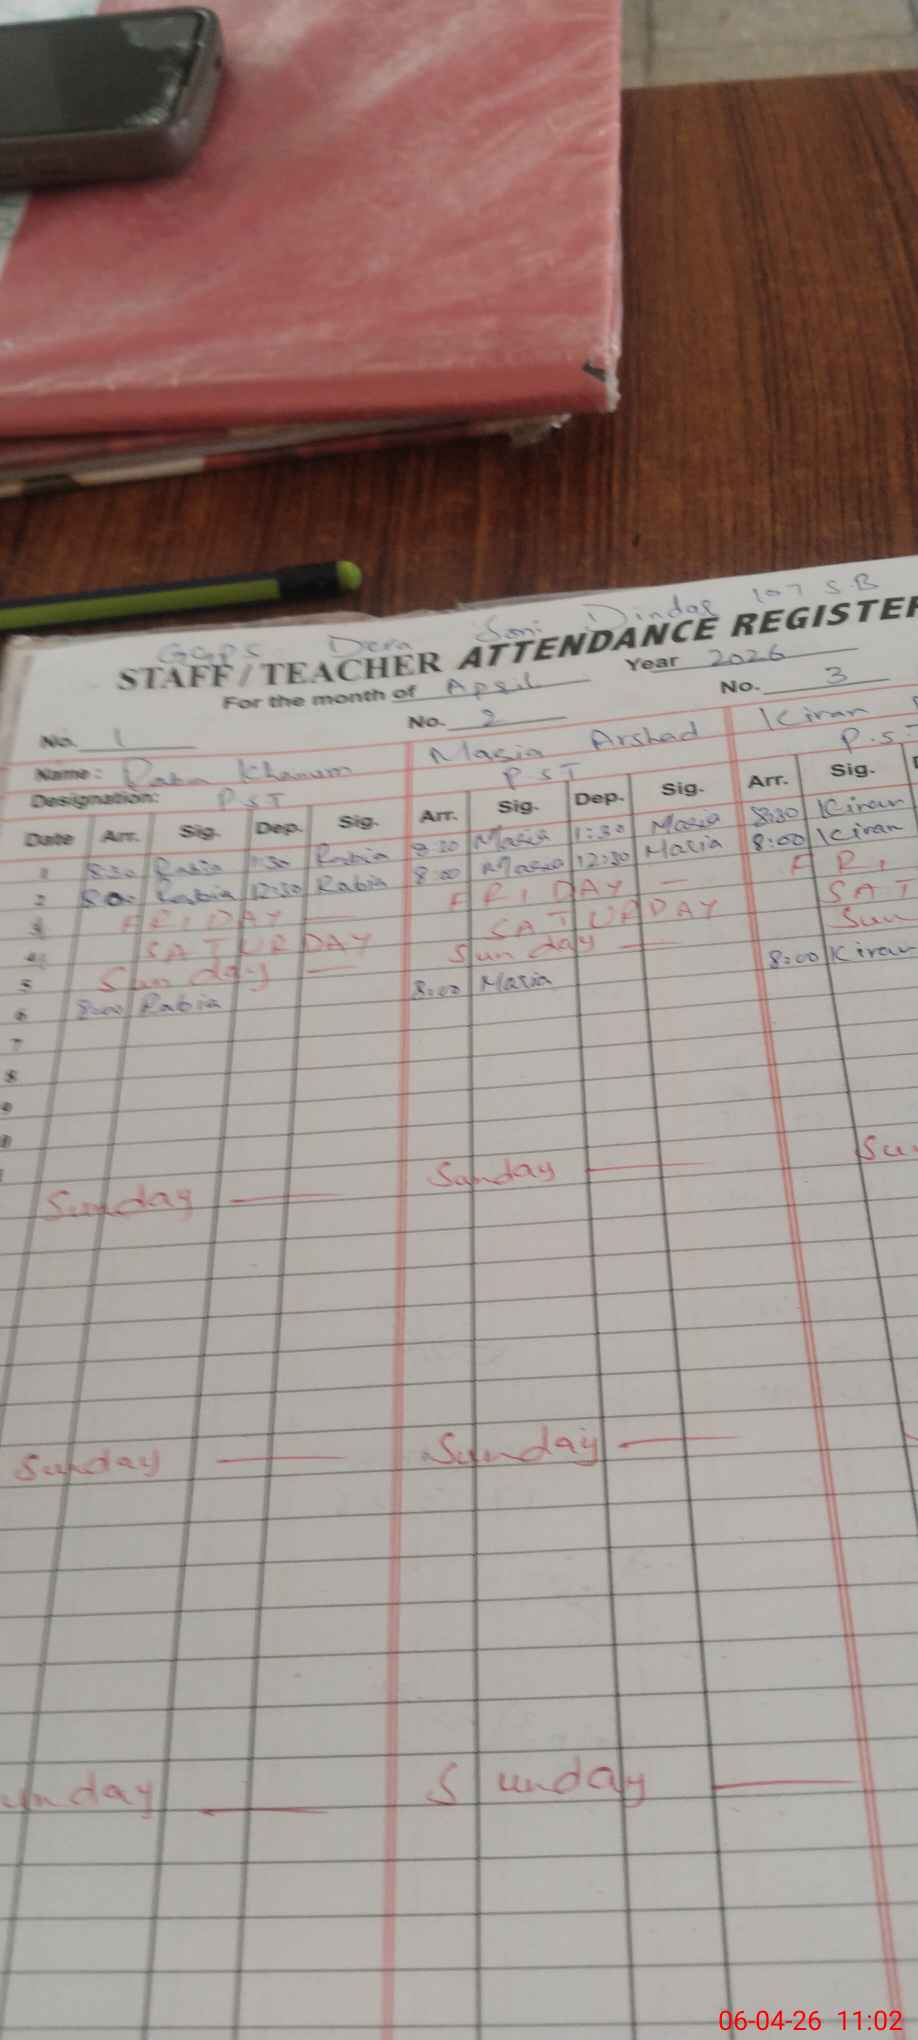 GGPS Dera Soni Dindar 107 S.B
STAFF / TEACHER ATTENDANCE REGISTER
For the month of April Year 2026
No. 1 No. 2 No. 3
Name: Khanum Masia Arshad Kiran
Designation: PST PST P.S.T
Date Arr. Sig. Dep. Sig. Arr. Sig. Dep. Sig. Arr. Sig.
1 8:30 Rabia 1:30 Rabia 8:30 Masia 1:30 Masia 8:30 Kiran
2 8:00 Rabia 12:30 Rabia 8:00 Masia 12:30 Masia 8:00 Kiran
3 FRIDAY — FRIDAY — FRI
4 SATURDAY SATURDAY SAT
5 Sunday — Sunday — Sun
6 8:00 Rabia 8:00 Masia 8:00 Kiran
7
8
9
Sunday — Sunday — Su
Sunday — Sunday —
unday — Sunday —
06-04-26 11:02